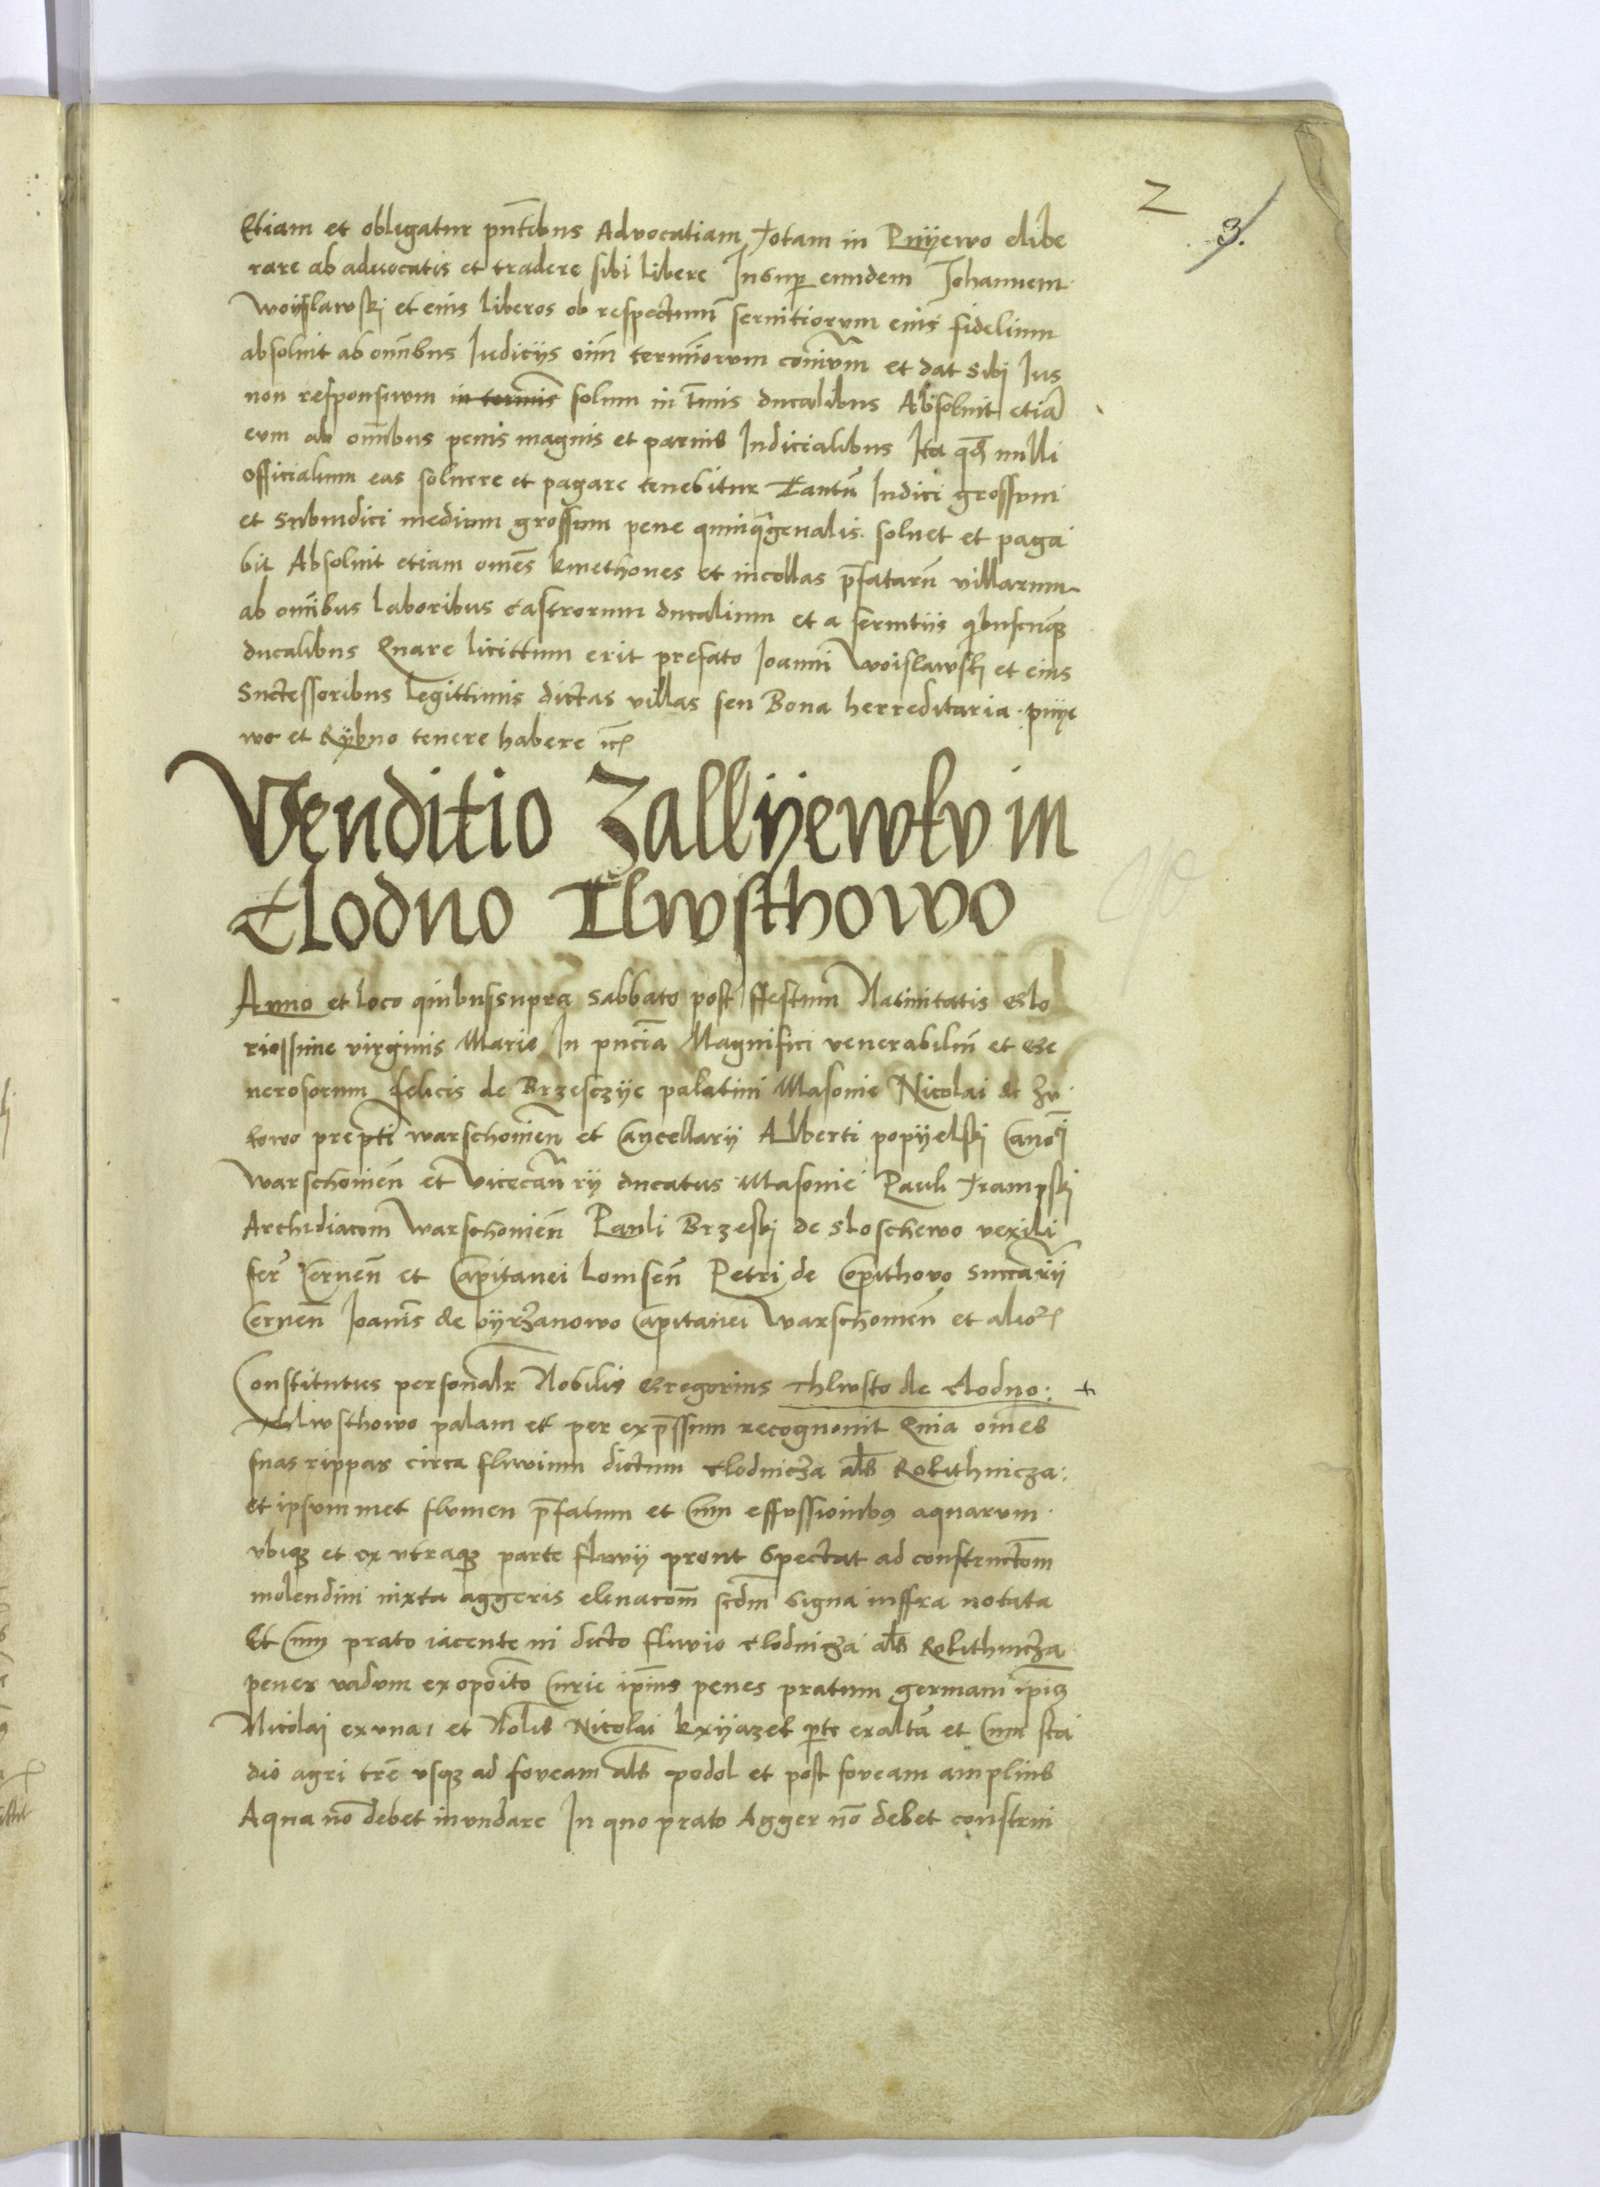 2
3.
Etiam et obligatur pñtibus Advocatiam totam in Pnÿewo elibe
rare ab advocatis et tradere sibi libere Insup eundem Johannem
Woÿslawski et eius liberos ob respectum servitiorum eius fidelium
absolvit ab omĩbus Iudicÿs oĩm terminorum et dat sibi Ius
non responsivum in terminis solum in t̃mis ducalibus Absolvit etiã
eum ab omĩbus penis magnis et parvis Iudicialibus Ita nulli
officialium eas solvere et pagare tenebitur Tantũ Iudici grossum
et Subiudici medium grossum pene solvet et paga
bit Absolvit etiam omẽs kmethones et incollas p̃fatarũ villarum
ab omĩbus laboribus castrorum ducalium et a servitiis
ducalibus Quare licittum erit prefato Joanni Woislawski et eius
Successoribus legittimis dictas villas seu Bona herreditaria pnÿe
wo et Rÿbno tenere habere
Venditio Zallÿewkv in
Clodno Tlwsthowo
Anno et loco quibussupra Sabbato post ffestum Nativitatis Glo
riossime virginis Marie In pñcia Magnifici venerabiliũ et Ge
nerosorum felicis de Brzesczÿe palatini Masovie Nicolai de Zu
kowo prepti warschovieñ et Cancellarÿ Alberti popÿelski
Warschovieñ et rÿ ducatus Masovie Pauli
Archidiaconi Warschovieñ Pauli Brzeski de Sloschewo vexili
feri Cerneñ et Capitanei Lomseñ Petri de Copithovo
Cerneñ Joanis de vÿrzanowo Capitanei Warschovieñ et
Constitutus personalr Nobilis Gregorius Thlwsto de Clodno: +
Thlwsthowo palam et per exp̃ssum recognovit Quia omnes
suas rippas circa fluvium dictum Clodnicza als Rokithnicza:
et ipsummet flumen p̃fatum et Cum effussionibus aquarum
ubiqȝ et ex utraqȝ parte fluvÿ prout Spectat ad constructiom
molendini iuxta aggeris scdm Signa inffra notata
Et Cum prato iacente in dicto fluvio Clodnicza als Rokithnicza
penes vadum ex opoito Curie ip̃ius penes pratum germani
Nicolai ex una, et Nolis Nicolai kxÿazek pte ex altã et Cum sta
dio agri tre usqȝ ad foveam als podol et post foveam amplius
Aqua nõ debet inundare In quo prato Agger nõ debet constrni